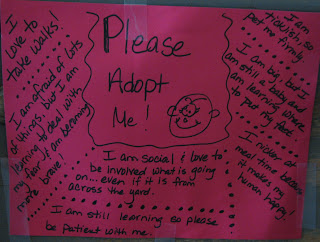 Please
Adopt
Me!
I love to
take walks!
I am afraid of lots
of things, but I am
learning to deal with
my fear & am becoming
more brave.
I am
ticklish, so
pet me firmly.
I am big, but I
am still a baby and
am learning where
to put my feet.
I nicker at
meal time because
it makes my
human happy!
I am social & love to
be involved what is going
on... even if it is from
across the yard.
I am still learning so please
be patient with me.